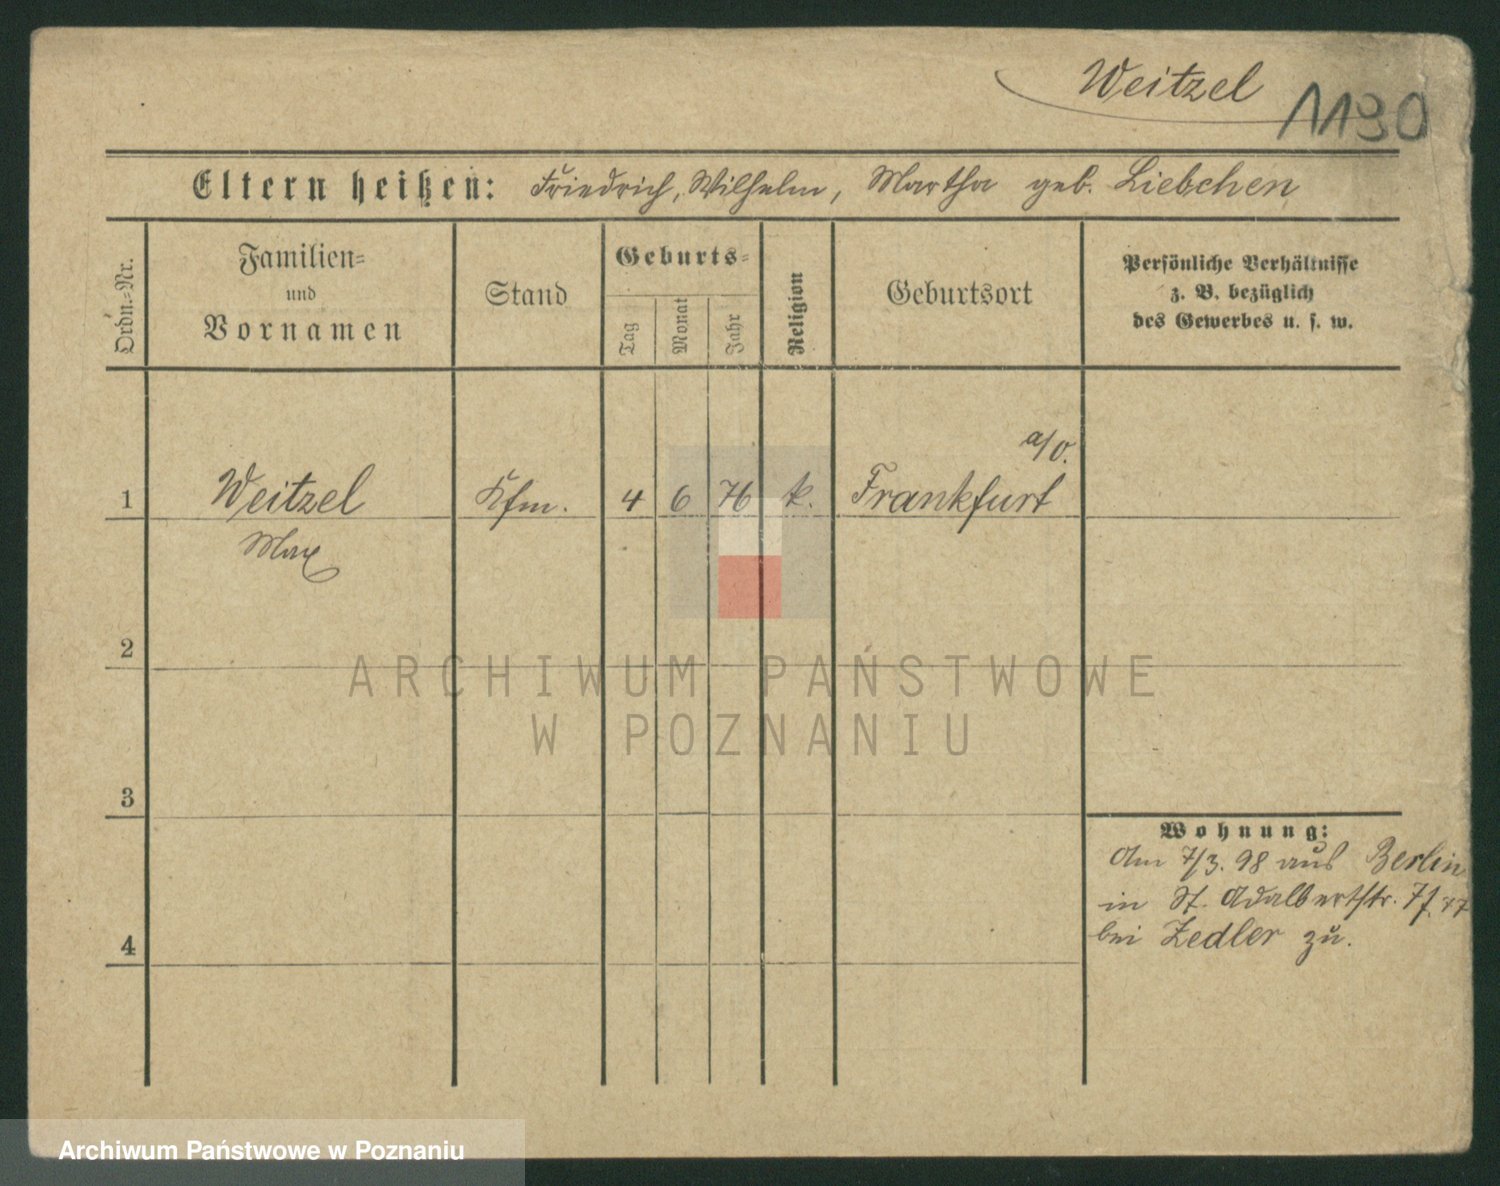 Weitzel
1190
Eltern heißen: Friedrich, Wilhelm, Martha geb. Liebchen
Ordn.=Nr.
Familien=
und
Vornamen
Stand
Geburts=
Tag
Monat
Jahr
Religion
Geburtsort
Persönliche Verhältnisse
z. B. bezüglich
des Gewerbes u. s. w.
a/O.
1 Weitzel Kfm. 4 6 76 k. Frankfurt
Max
2
ARCHIWUM PAŃSTWOWE
W POZNANIU
3
Wohnung:
Am 7/3. 98 aus Berlin
in St. Adalbertstr.
bei Zedler zu.
4
Archiwum Państwowe w Poznaniu